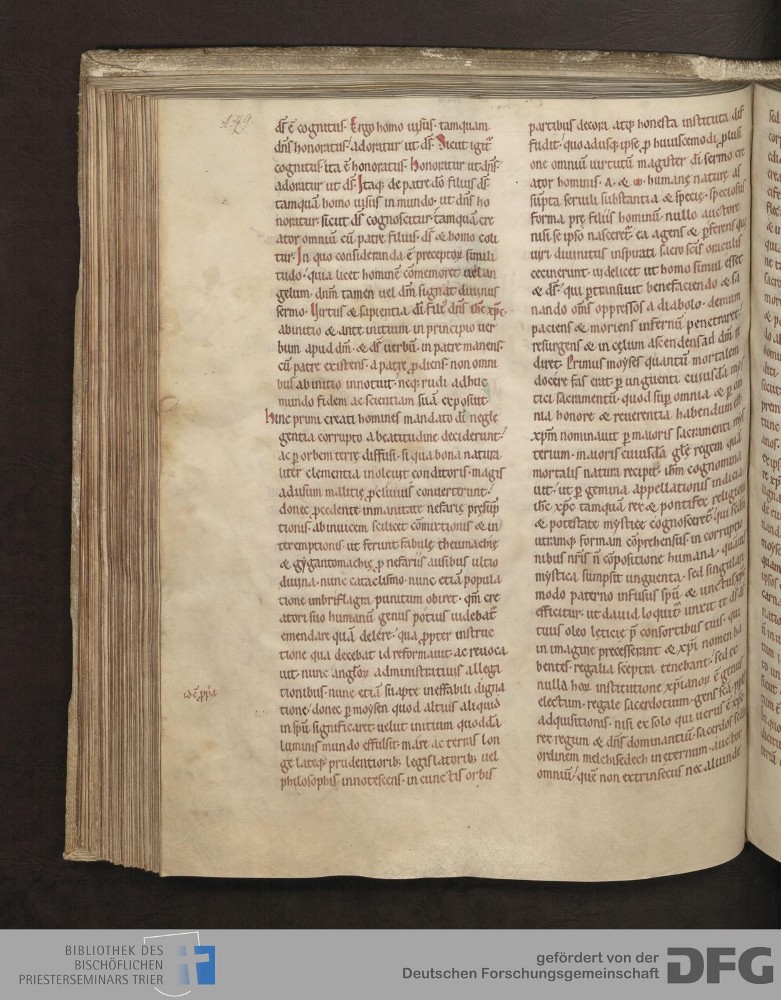 df ē cognitus· Ergo homo uisus· tamquam
dn̄s honoratus· adoratur ut ds̄· Sicut igit̄
cognitus· ita ē honoratus· honoratur ut dn̄s·
adoratur ut ds̄· Itaq; de patre dō filius ds̄·
tamquā homo uisus in mundo· ut dn̄s ho
noratur· sicut ds̄ cognoscitur· tamquā cre
ator omniū cū patre filius· ds̄ & homo coli
tur· In quo consideranda ē preceptoꝝ simili
tudo· quia licet hominē cōmemoret uel an
gelum· dn̄m tamen uel dm̄ signat diuinus
sermo· Uirtus & sapientia dī· fili dn̄s ihc xp̄c·
ab initio & ante initium in principio uer
bum apud dm̄· & ds̄ uerbū· in patre manens·
cū patre existens· a patre ꝓdiens· non omni
bus ab initio innotuit· neq; rudi adhuc
mundo fidem ac scientiam suā exposuit·
hinc primi creati homines mandato dī negle
gentia corrupto a beatitudine deciderunt·
ac ꝑ orbem terrę diffusi· si qua bona natura
liter clementia inoleuit conditoris· magis
ad usum malitię ꝓcliuius conuerterunt·
donec ꝓcedente inmanitate nefarię presūp
tionis· ab inuicem scilicet cōmixtionis & in
teremptionis· ut ferunt fabulę theumachię
& gygantomachię ꝓ nefariis ausibus ultio
diuina· nunc cataclismo· nunc etiā popula
tione imbriflagra punitum obiret· qm̄ cre
atori suo humanū genus potius uidebat̄
emendare quā delere· qua ꝓpter instruc
tione qua decebat id reformauit· ac reuoca
uit· nunc angloꝝ administratiuis allega
idē ꝓpa
tionibus· nunc etiā suapte ineffabili digna
tione· donec ꝑ moysen quod altius aliquid
in spū significaret· uelut initium quoddā
luminis mundo effulsit· mare ac terras lon
ge lateq; prudentiorib; legislatorib; uel
philosophis innotescens· in cunctis orbis
partibus decora atq; honesta instituta dif
fudit· quo adusq; ipse ꝓ huiuscemodi
one omniū uirtutū magister dī sermo cre
ator hominis· humanę naturę as
sūpta seruili substantia & specie· speciosus
forma prę filiis hominū· nullo auctore
nisi se ipso nasceret̄· ea agens & ꝑferens quę
uiri diuinitus inspirati sacrosc̄is oraculis
cecinerunt· uidelicet ut homo simul esset
& ds̄· qui ꝑtransiuit benefaciendo & sa
nando om̄s oppressos a diabolo· demum
paciens & moriens infernū penetraret·
resurgens & in cęlum ascendens ad dm̄
diret· Primus moyses quantū mortalem
docere fas erat· ꝑ unguenti cuiusdā mys
tici sacramentū· quod suꝑ omnia & ꝑ om
nia honore & reuerentia habendum est·
xp̄m nominauit· ꝑ maioris sacramenti mys
terium· maioris cuiusdā glę regem quā
mortalis natura recipit· ih̄m cognomina
uit· ut ꝑ gemina appellationis indicia
ihc xp̄c tamquam rex & pontifex religione
& potestate mysticę cognosceret̄· qui secundū
utramq; formam cōprehensus· in corruptio
nibus nr̄is n̄ cōpositione humana· quam
mystica sumpsit unguenta· sed singulari
modo paterno infusus spū· & unctus xp̄c
efficitur· ut dauid loquit̄ unxit te ds̄ ds̄
tuus oleo leticię p̄ consortibus tuis· qui
in imagine precesserant & xp̄i nomen ha
bentes· regalia sceptra tenebant· sed ex
nulla hoꝝ institutione xp̄ianoꝝ ē genus
electum· regale sacerdotium· gens sc̄a· ppls
adquisitionis· nisi ex solo qui uerus ē xp̄c
rex regum & dn̄s dominantiū· sacerdos scdm
ordinem melchisedech in eternum· auctor
omniū· quē non extrinsecus nec aliunde
BIBLIOTHEK DES
BISCHÖFLICHEN
PRIESTERSEMINARS TRIER
gefördert von der
Deutschen Forschungsgemeinschaft
DFG